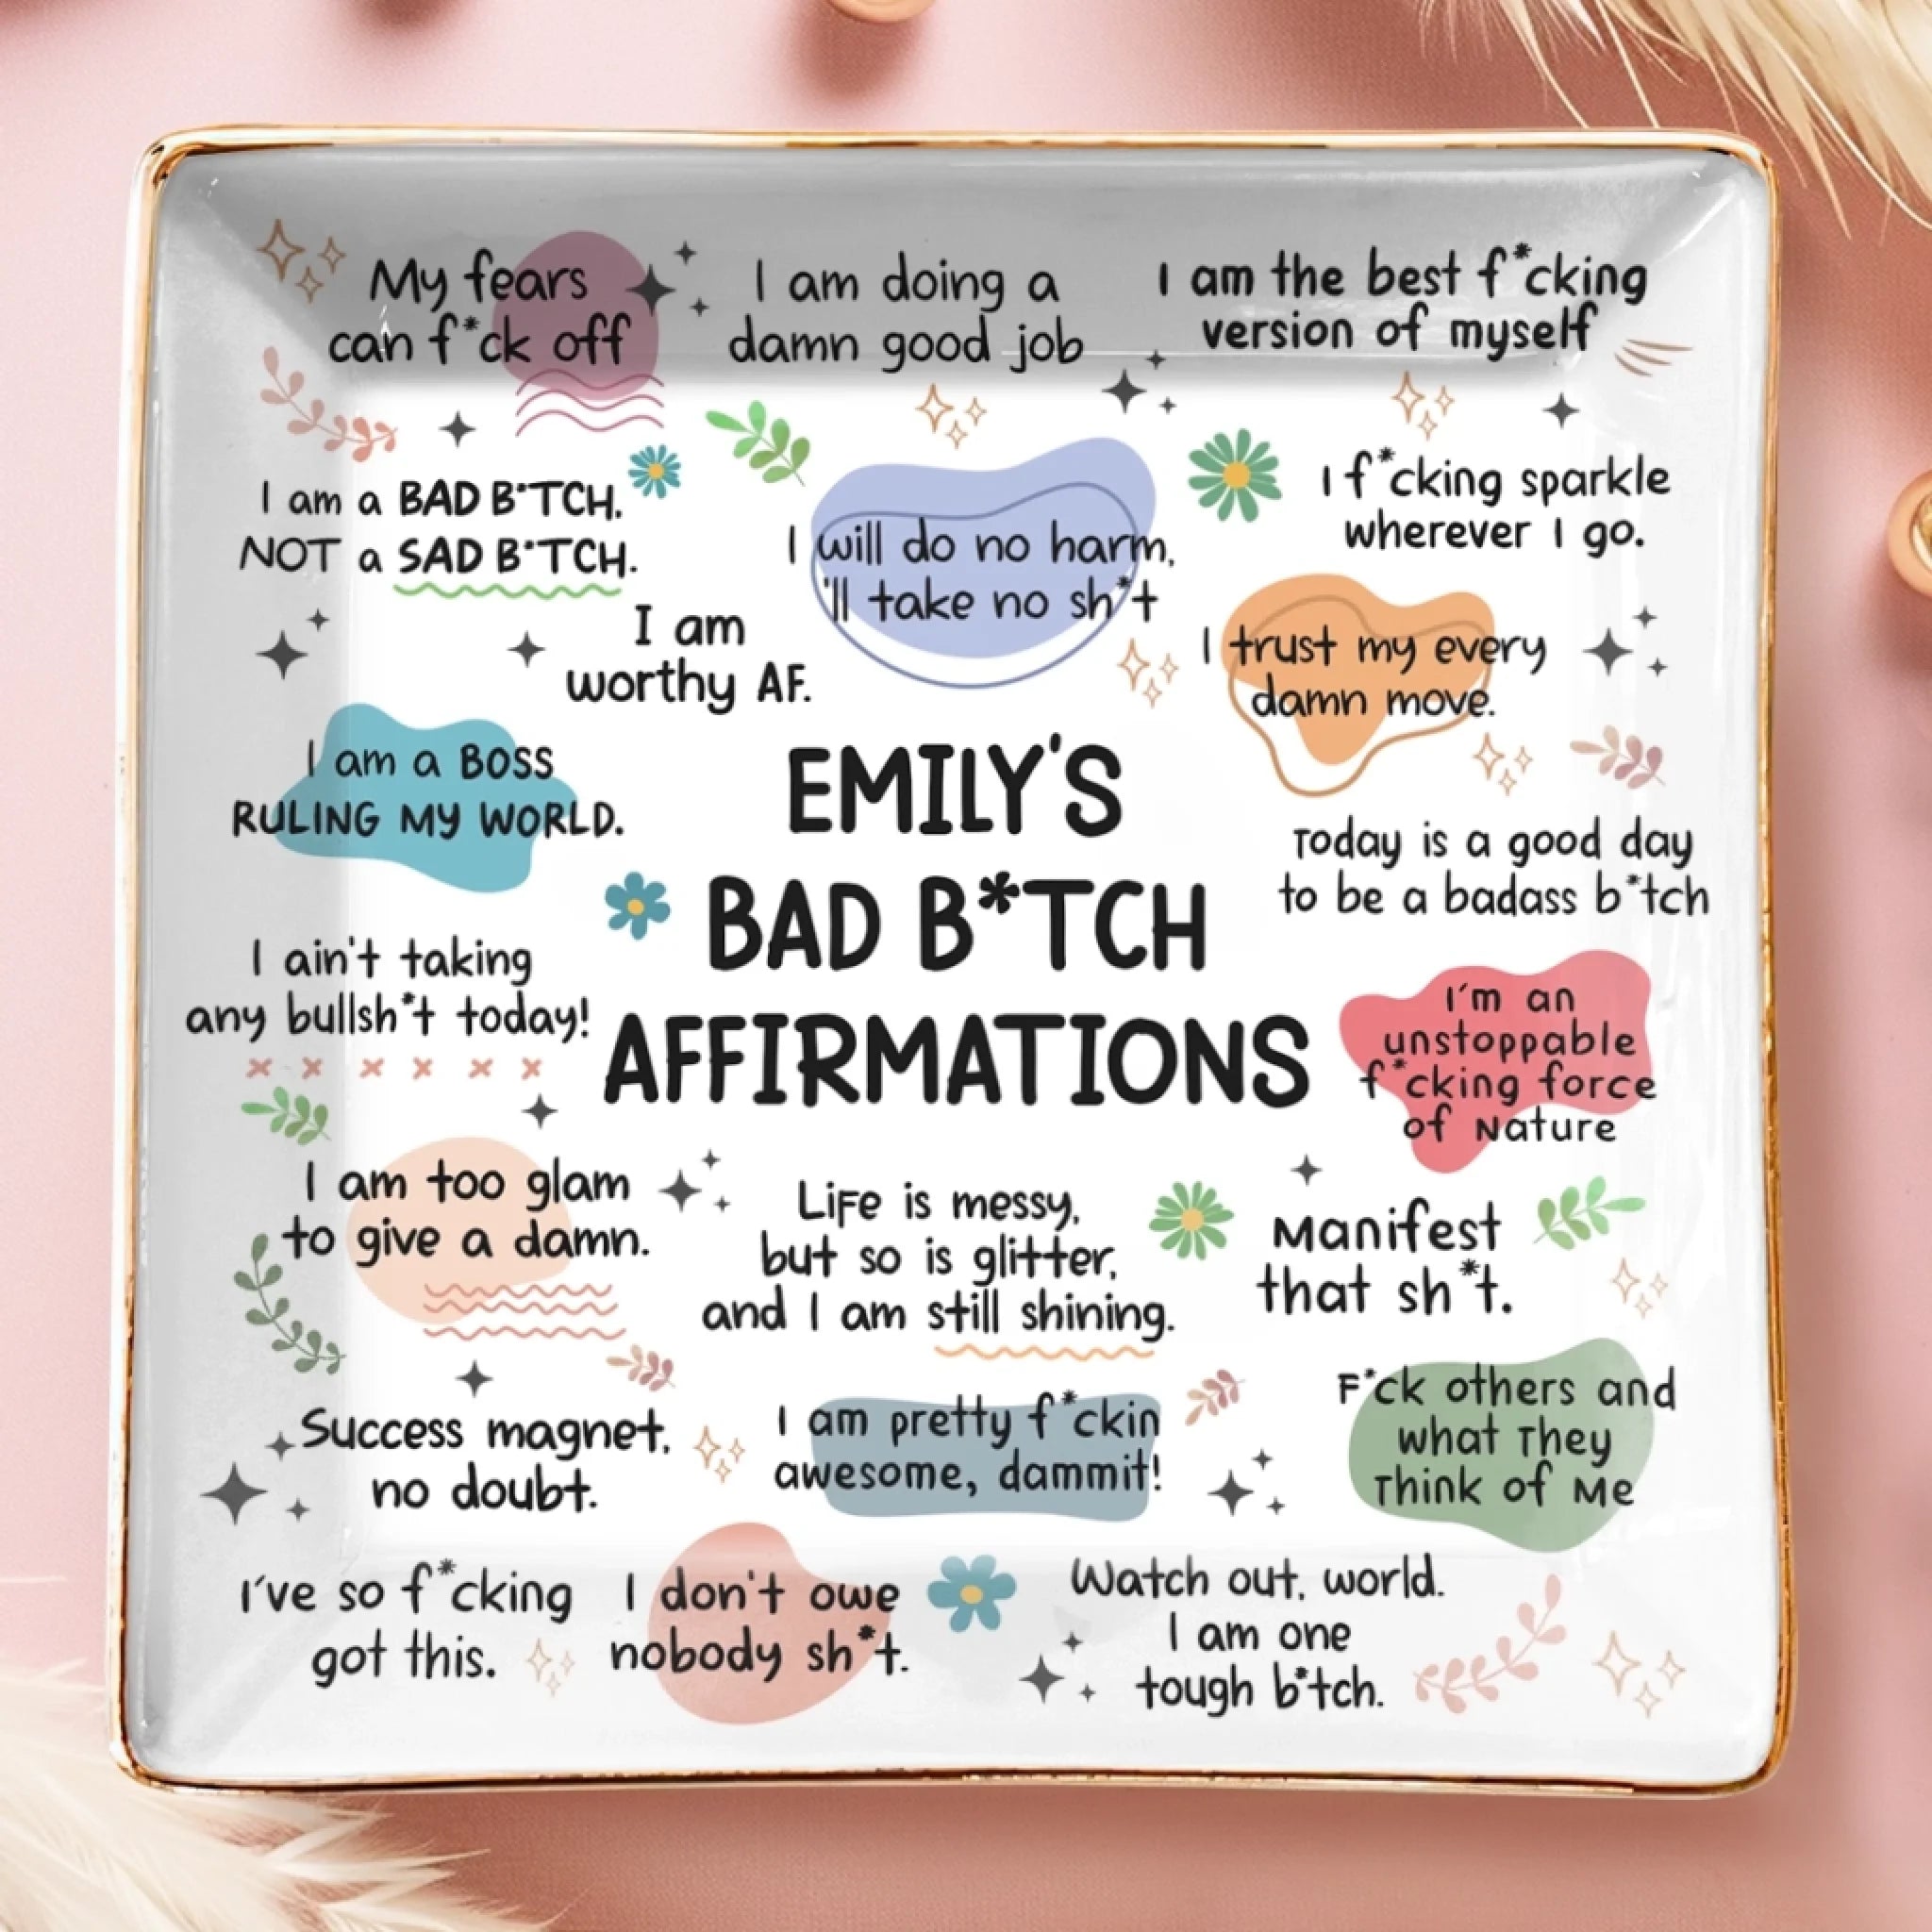 My fears
can f*ck off
I am doing a
damn good job
I am the best f*cking
version of myself
I am a BAD B*TCH.
NOT a SAD B*TCH.
I will do no harm,
'll take no sh*t
I f*cking sparkle
wherever I go.
I am
worthy AF.
I trust my every
damn move.
I am a BOSS
RULING MY WORLD.
EMILY'S
BAD B*TCH
AFFIRMATIONS
Today is a good day
to be a badass b*tch
I ain't taking
any bullsh*t today!
I'm an
unstoppable
f*cking force
of Nature
I am too glam
to give a damn.
Life is messy,
but so is glitter,
and I am still shining.
Manifest
that sh*t.
Success magnet,
no doubt.
I am pretty f*ckin
awesome, dammit!
F*ck others and
what They
Think of Me
I've so f*cking
got this.
I don't owe
nobody sh*t.
Watch out, world.
I am one
tough b*tch.